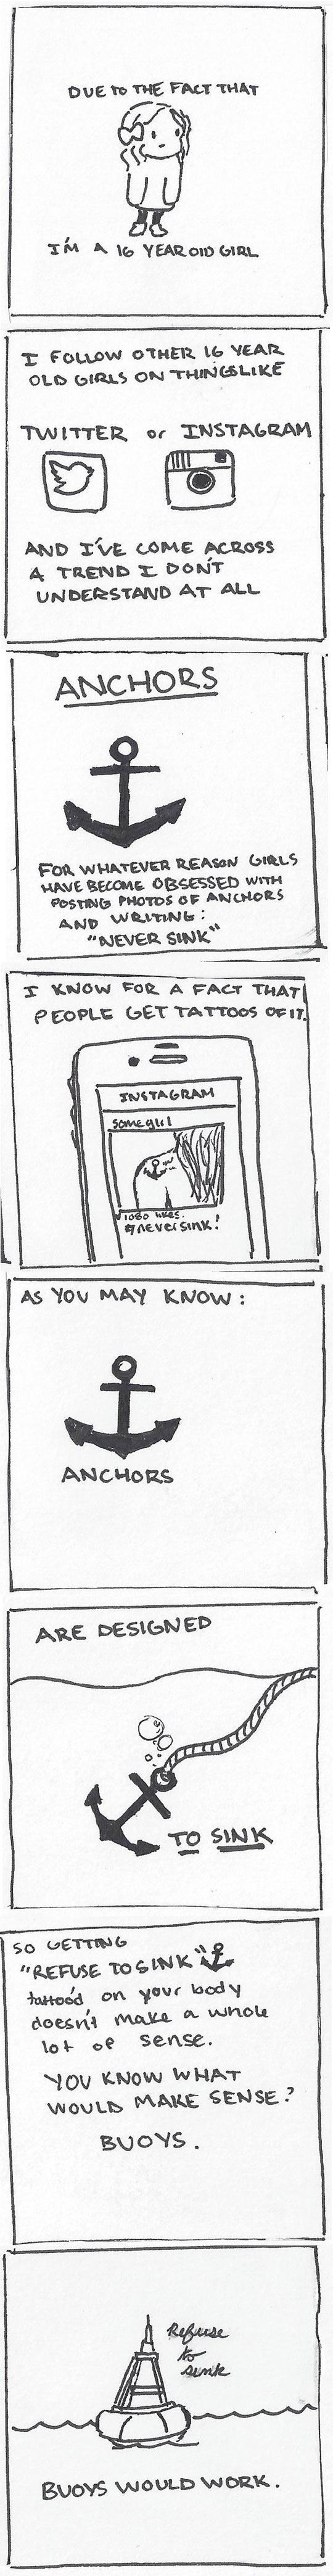 DUE TO THE FACT THAT
I'M A 16 YEAR OLD GIRL
I FOLLOW OTHER 16 YEAR
OLD GIRLS ON THINGS LIKE
TWITTER or INSTAGRAM
AND I'VE COME ACROSS
A TREND I DON'T
UNDERSTAND AT ALL
ANCHORS
FOR WHATEVER REASON GIRLS
HAVE BECOME OBSESSED WITH
POSTING PHOTOS OF ANCHORS
AND WRITING:
"NEVER SINK"
I KNOW FOR A FACT THAT
PEOPLE GET TATTOOS OF IT.
INSTAGRAM
some girl
1080 likes.
#neversink!
AS YOU MAY KNOW:
ANCHORS
ARE DESIGNED
TO SINK
SO GETTING
"REFUSE TO SINK"
tattoo'd on your body
doesn't make a whole
lot of sense.
YOU KNOW WHAT
WOULD MAKE SENSE?
BUOYS.
Refuse
to
sink
BUOYS WOULD WORK.